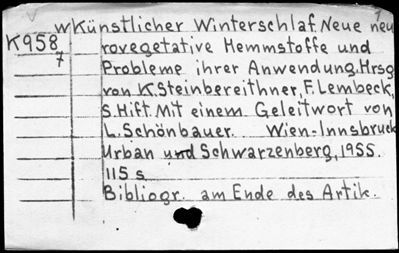 w Künstlicher Winterschlaf. Neue neu
K958 rovegetative Hemmstoffe und
7 Probleme ihrer Anwendung. Hrsg.
von K. Steinbereithner, F. Lembeck,
S. Hift. Mit einem Geleitwort von
L. Schönbauer. Wien-Innsbruck
Urban und Schwarzenberg, 1955.
115 s
Bibliogr. am Ende des Artik.